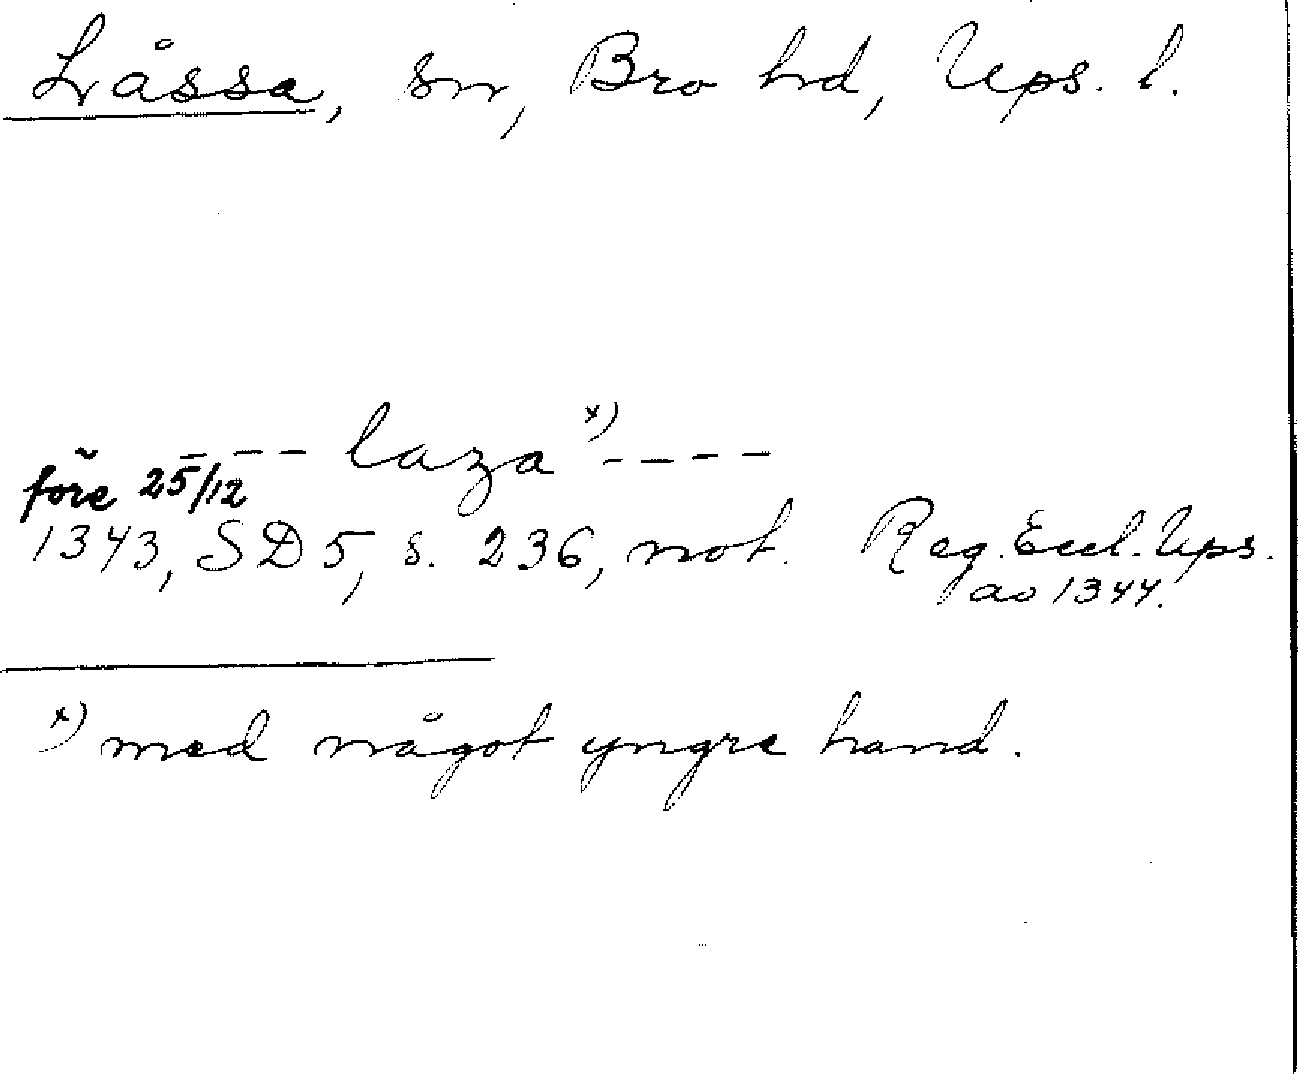 Låssa, sn, Bro hd, Ups. l.
- - - laza x) - - - -
före 25/12
1343, SD 5, s. 236, not. Reg. Eccl. Ups.
ao 1344.
x) med något yngre hand.